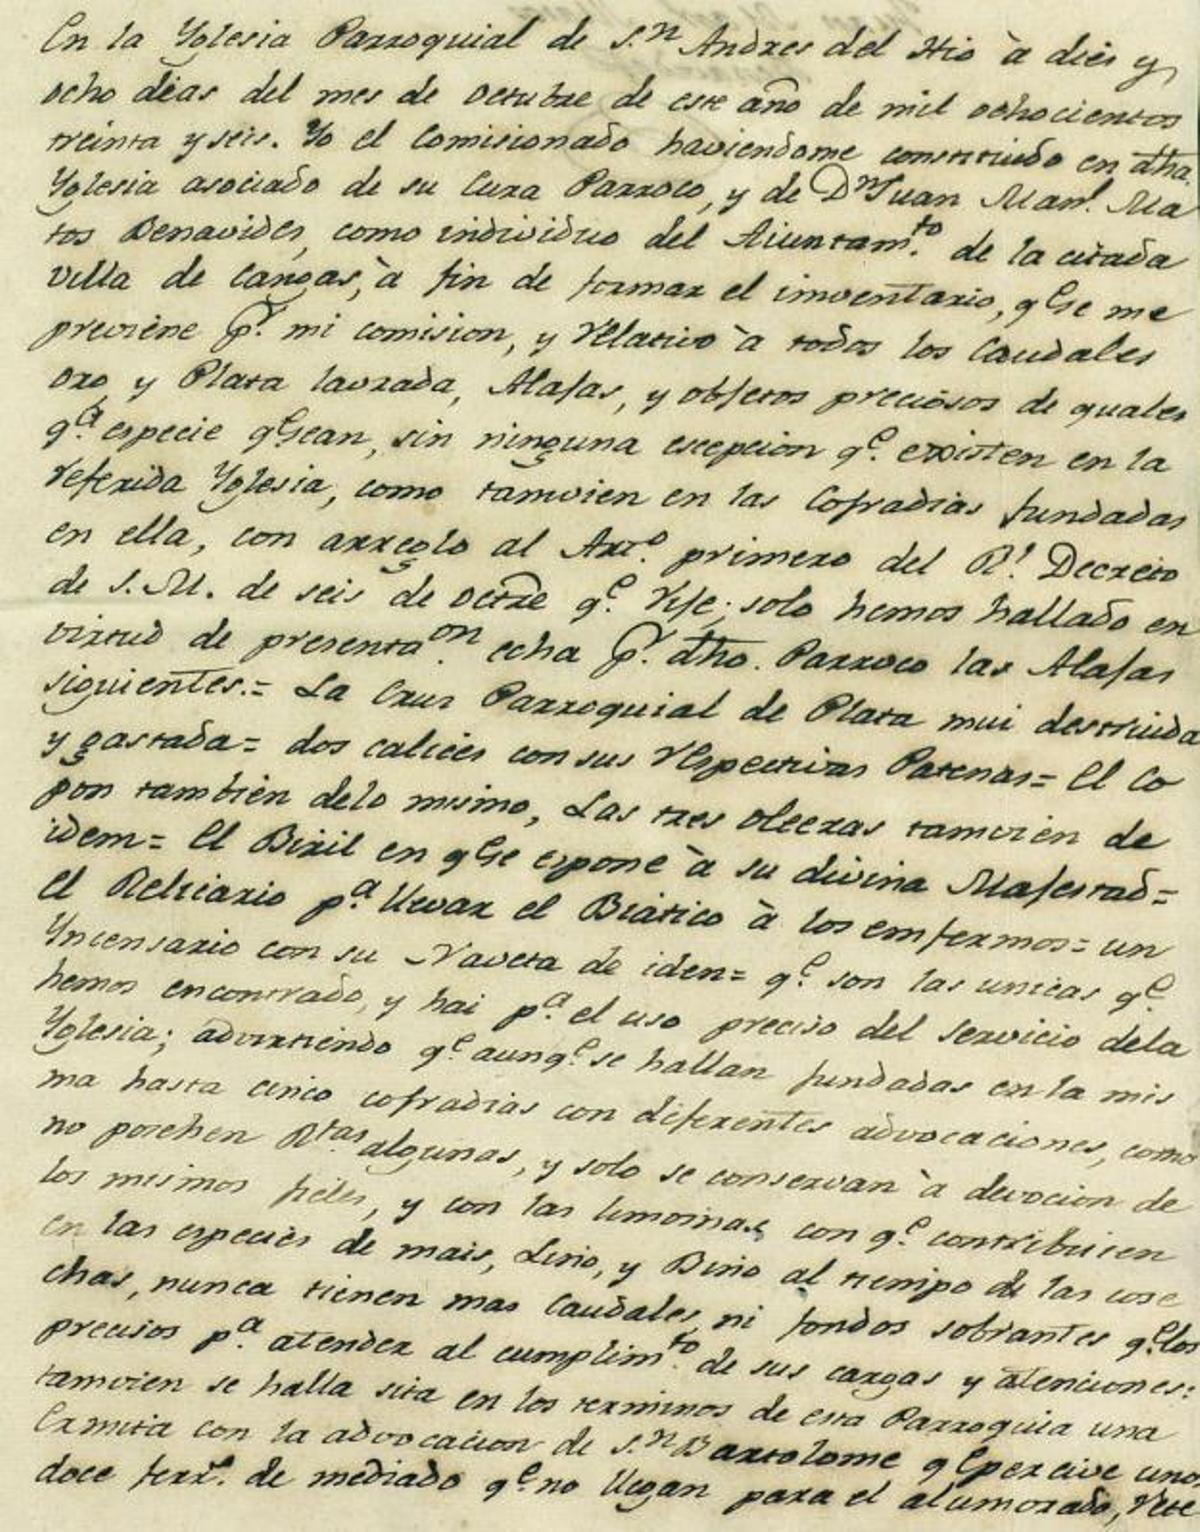 En la Yglesia Parroquial de S.n Andres del Hio à dies y
ocho dias del mes de Octubre de este año de mil ochocientos
treinta y seis. Yo el Comisionado haviendome constituido en dha.
Yglesia asociado de su Cura Parroco, y de D.n Juan Man.l Ma
tos Benavides, como individuo del Aiuntam.to de la citada
villa de Cangas, à fin de formar el inventario, q.e se me
previene p.r mi comision, y relativo à todos los Caudales
oro y Plata lavrada, Alajas, y objetos preciosos de quales
q.a especie q.e sean, sin ninguna escepcion q.e existen en la
referida Yglesia, como tamvien en las Cofradias fundadas
en ella, con arreglo al Art.o primero del R.l Decreto
de S. M. de seis de Octre q.e rije; solo hemos hallado en
virtud de presenta.on echa p.r dho. Parroco las Alajas
siguientes.= La Crus Parroquial de Plata mui destruida
y gastada= dos calices con sus respectivas Patenas= El Co
pon tambien delo mismo, Las tres oleeras tamvien de
idem= El Biril en q.e se espone à su divina Majestad=
El Relicario p.a llevar el Biatico à los emfermos= un
Yncensario con su Naveta de iden= q.e son las unicas q.e
hemos encontrado, y hai p.a el uso preciso del servicio dela
Yglesia; advirtiendo q.e aunq.e se hallan fundadas en la mis
ma hasta cinco cofradias con diferentes advocaciones, como
no poséhen R.tas algunas, y solo se conservan à devocion de
los mismos fieles, y con las limosnas con q.e contribuien
en las especies de mais, Lino, y Bino al tiempo de las cose
chas, nunca tienen mas Caudales, ni fondos sobrantes q.e los
precisos p.a atender al cumplim.to de sus cargas y atenciones:
tamvien se halla sita en los terminos de esta Parroquia una
Ermita con la advocacion de S.n Bartolome q.e percive unos
doce ferr.s de mediado q.e no llegan para el alumbrado, rete